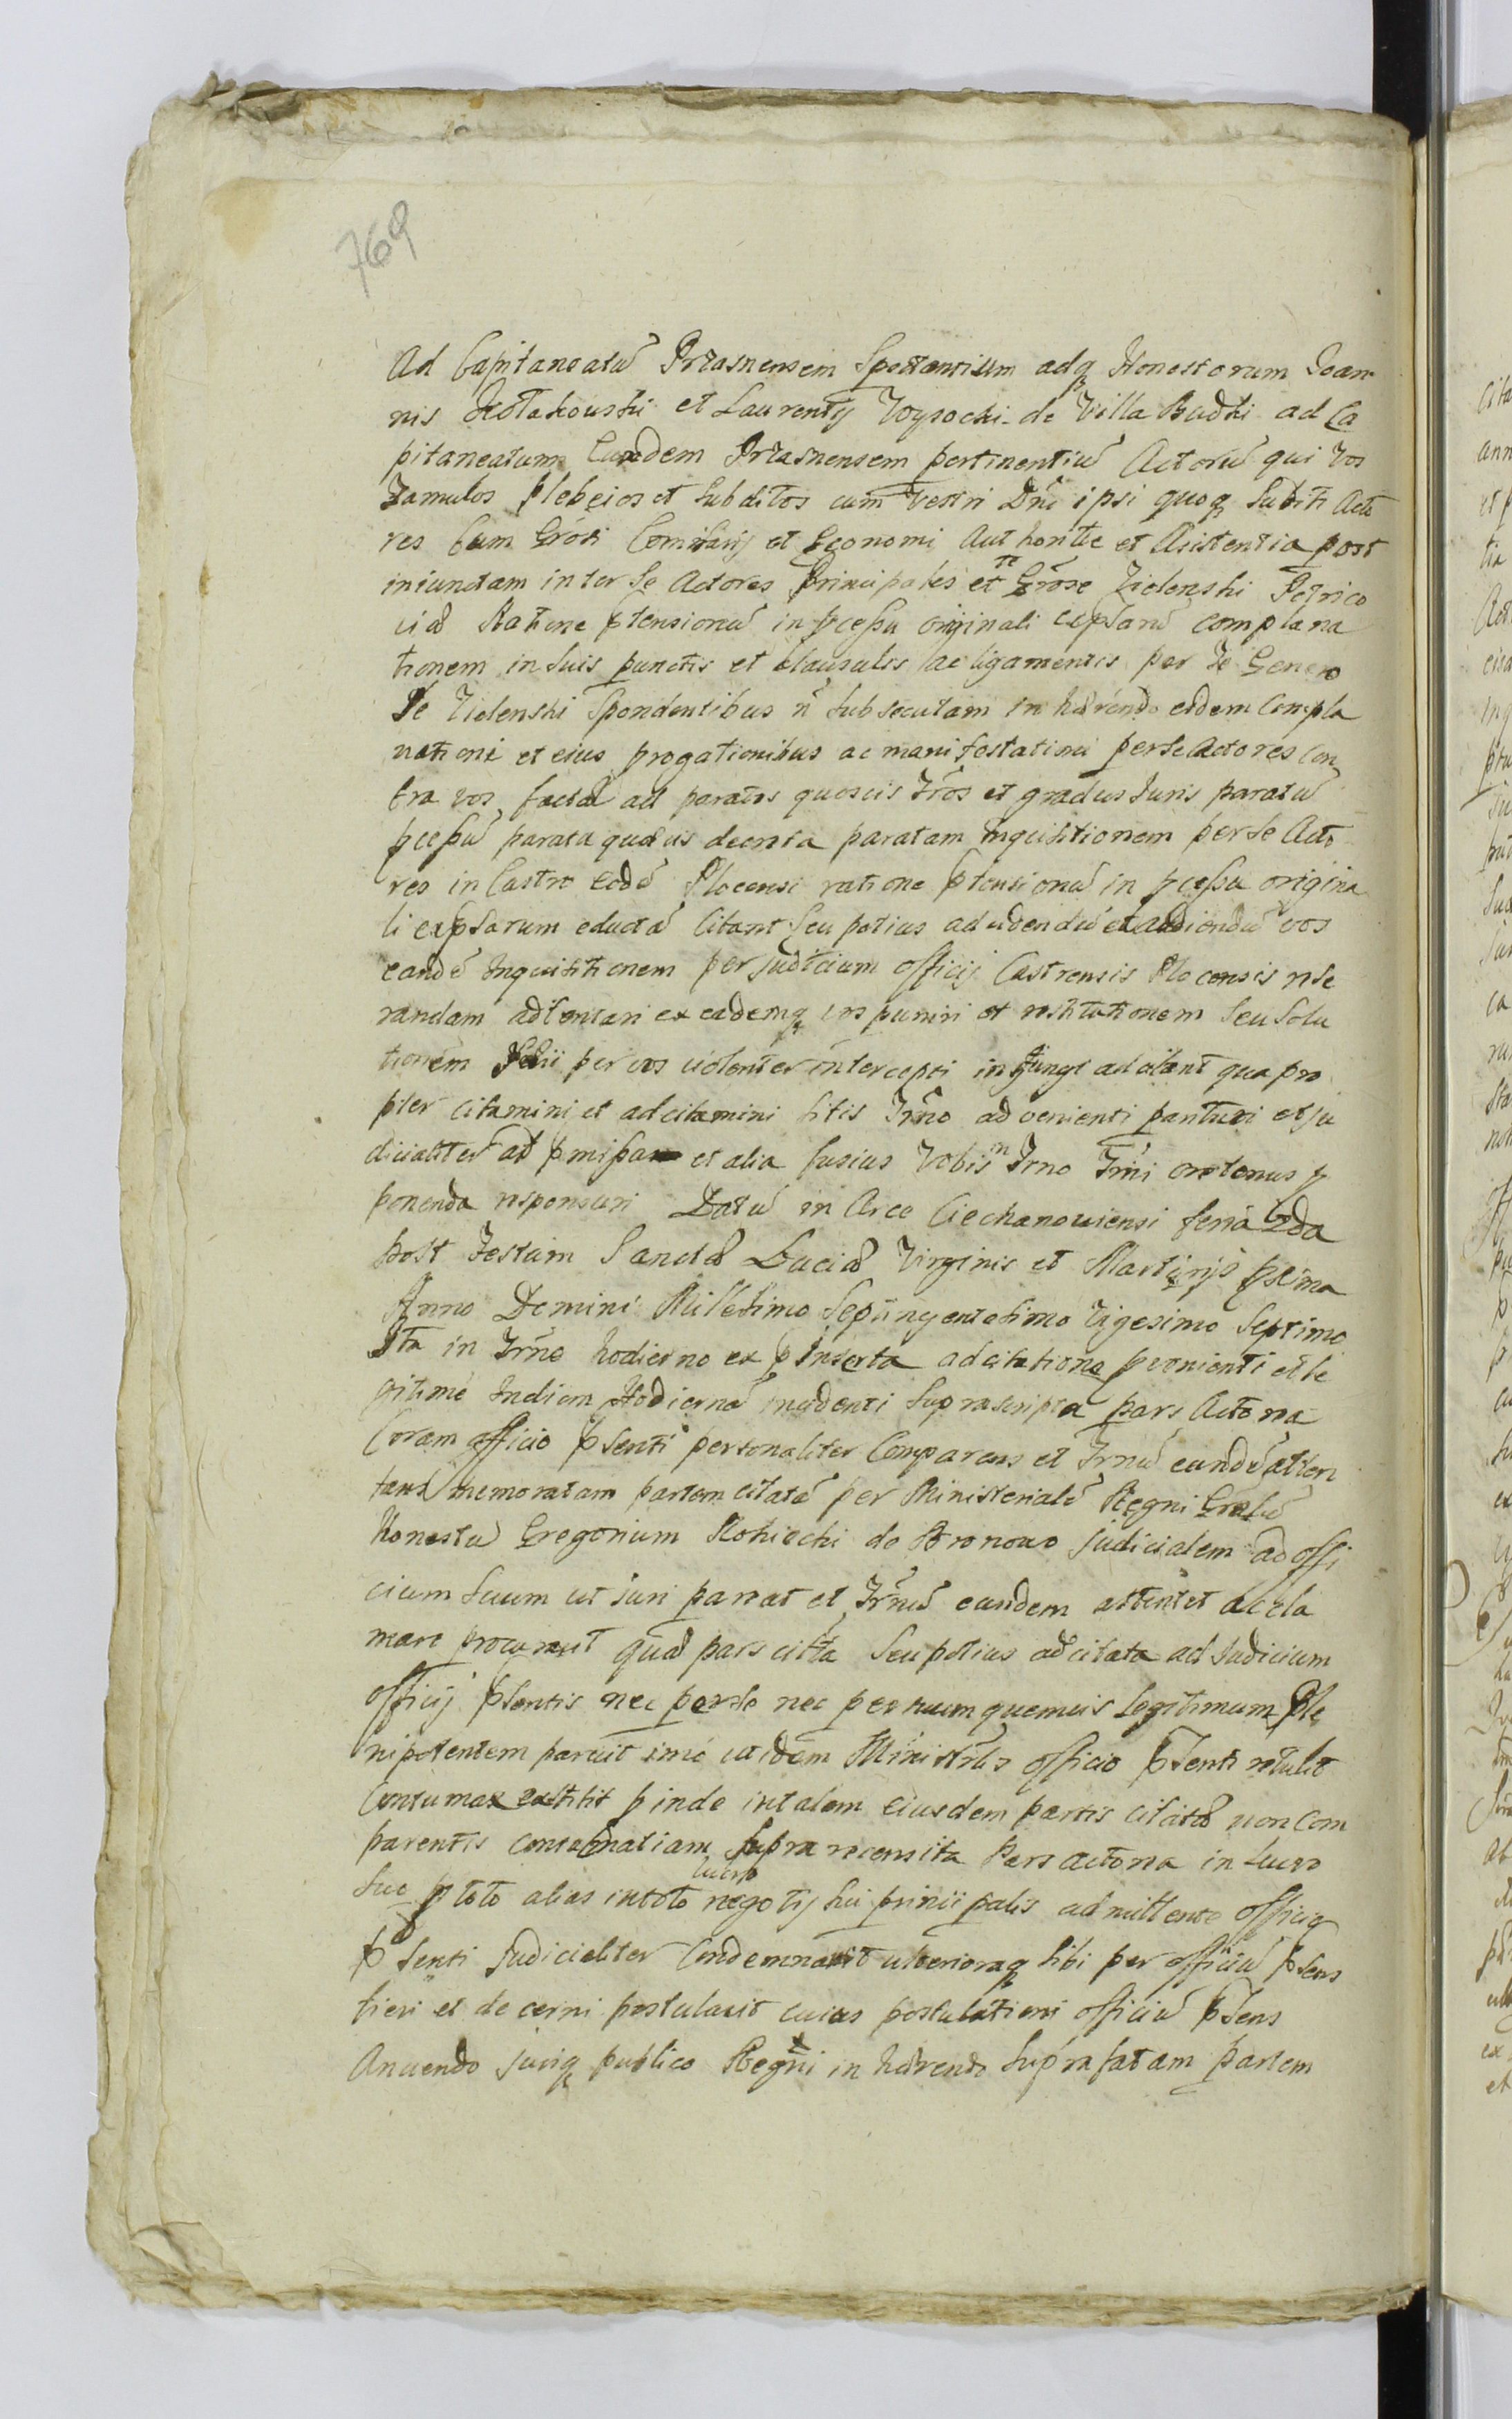 769
Ad Capitaneatũ Przasnensem Spectantium adq Honestorum Joan
nis Kołakouski et Laurentij Wysocki de Villa Budki ad Ca
pitaneatum Eundem Przasnensem pertinentiũ Actorũ qui vos
famulos plebeios et Subditos cum Vestri Dni ipsi quoq Subditi Acto
res cum Grosi Comisarij et Economi Authoritte et Asistentia post
iniunctam inter Se Actores Principales et te Grose Zielenski
Ratione ptensionũ in pcessu originali expsarũ complana
tionem in Suis punctis et Clausulis ac ligamentis per Te Genero
Se Zielenski Spondentibus ñ Subsecutam in hærendo eidem Compla
nationi et eius progationibus ac manifestationi per Se Actores con
tra vos factæ ad paratos quosuis Tros et gradus Juris paratũ
pcessũ parata quæuis decreta paratam inquisitionem per Se Acto
res in Castro eodẽ Plocensi ratione ptensionũ in pcessu origina
li expsarum eductã Citant Seu potius ad uidendũ et audiendũ vos
eandẽ Inquisitionem per Judicium officij Castrensis Plocensis rese
randam ex eademq vos puniri et restitutionem Seu Solu
tionem per vos uiolenter intercepti in Jungi adcitant qua pro
pter citamini et adcitamini Sitis Trno ad venienti parituri et Ju
dicialiter ad pmissa et alia fusius Vobis in Trno Trni oretenus p
ponenda responsuri Datũ in Arce Ciechanouiensi feria 2da
post Festum Sanctæ Luciæ Virginis et Martiris pxima
Anno Domini Millesimo Septingentesimo Vigesimo Septimo
Ita in Trno hodierno ex pinserta adcitatione puenienti et le
gitime Indiem Hodiernã incidenti Suprascripta pars Actorea
Coram officio pSenti personaliter Comparens et Trnũ eundẽ atten
tans memoratam partem citatã per Ministerialẽ Regni Gralẽ
Honestũ Gregorium Rokicki de Bronowo Judicialem ad offi
cium Suum ut juri pareat et Trnũ eundem attentet accla
mare procurauit quæ pars citta Seu potius adcitata ad Judicium
officij pSentis nec per Se nec per suum quemuis Legitimum Ple
nipotentem paruit imo ut idem Ministrlis officio pSenti retulit
Contumax extitit pinde in talem eiusdem partis citatæ non Com
parentis contumatiam Supra recensita Pars actorea in Lucro
Suo p toto alias in toto lucro negotij Sui principalis admittente officio
pSenti Judicialiter Condemnauit ulterioraq Sibi per officiũ pSens
fieri et decerni postulauit cuius postulationi officiũ pSens
Anuendo juriq publico Regni in hærendo Suprafatam partem